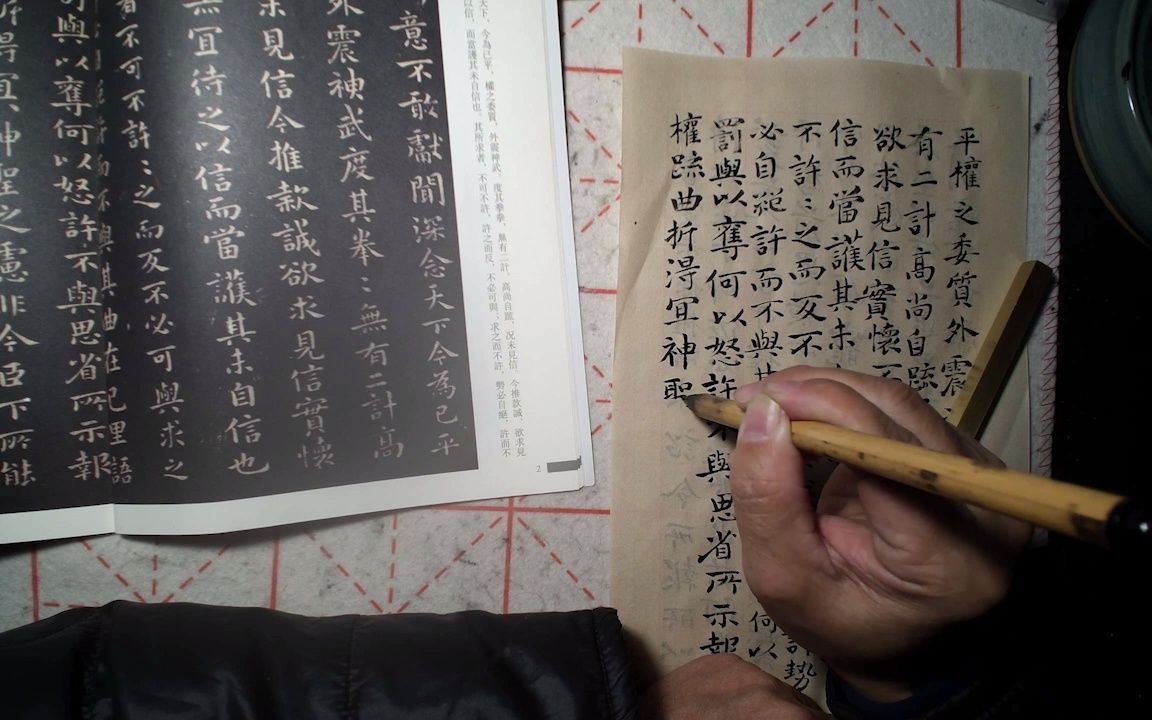 平權之委質外震
有二計高尚自疏
欲求見信實懷不
信而當護其未
不許〻之而反不 許勢
必自絕許而不與其 何以
罰與以奪何以怒許不與思省所示報
權疏曲折得宜神聖
天下,今為已平,權之委質,外震神武,度其拳拳,無有二計,高尚自疏,況未見信,今推款誠,欲求見
以信,而當護其未自信也。其所求者,不可不許,許之而反,不必可與,求之而不許,勢必自絕,許而不
2
意不敢獻聞深念天下今為已平
外震神武度其拳〻無有二計高
未見信今推款誠欲求見信實懷
無宜待之以信而當護其未自信也
者不可不許〻之而反不必可與求之
而不與其曲在己里語
與以奪何以怒許不與思省所示報
得宜神聖之慮非今臣下所能